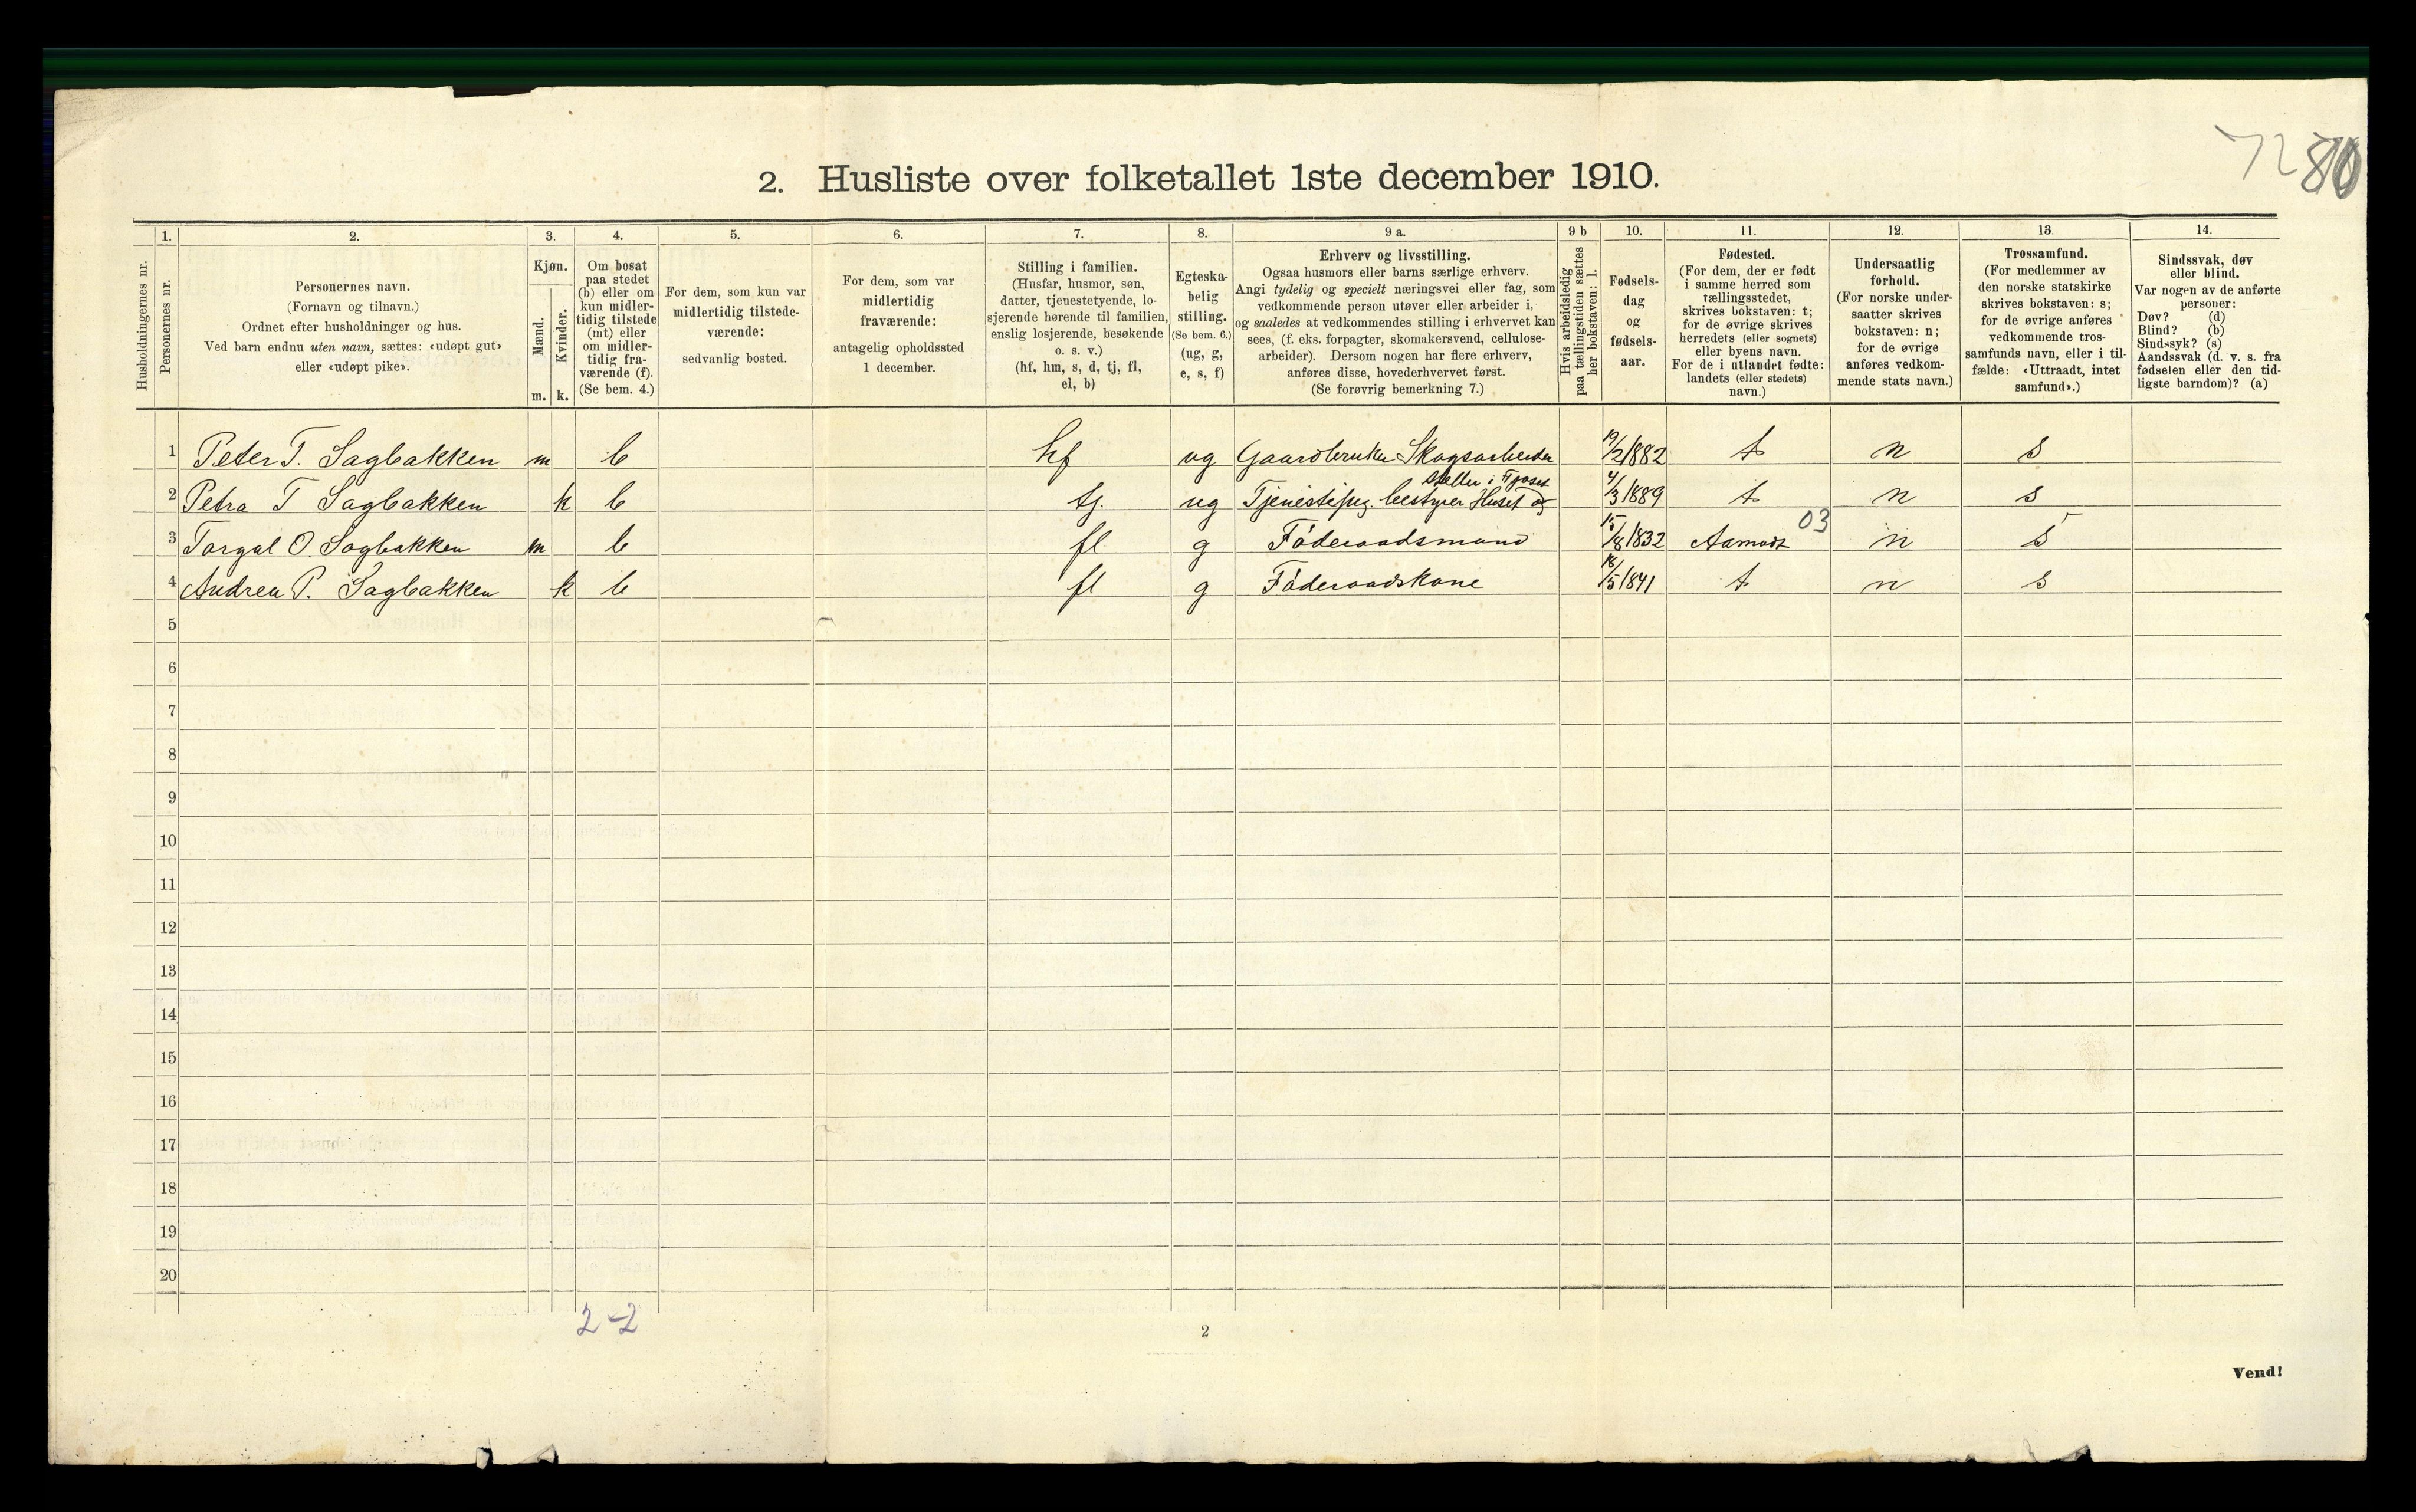 7280
2. Husliste over folketallet 1ste december 1910.
Husholdningernes nr.
1.
Personernes nr.
2.
Personernes navn.
(Fornavn og tilnavn.)
Ordnet efter husholdninger og hus.
Ved barn endnu uten navn, sættes: «udøpt gut»
eller «udøpt pike».
3.
Kjøn.
Mænd.
Kvinder.
m. k.
4.
Om bosat
paa stedet
(b) eller om
kun midler-
tidig tilstede
(mt) eller
om midler-
tidig fra-
værende (f).
(Se bem. 4.)
5.
For dem, som kun var
midlertidig tilstede-
værende:
sedvanlig bosted.
6.
For dem, som var
midlertidig
fraværende:
antagelig opholdssted
1 december.
7.
Stilling i familien.
(Husfar, husmor, søn,
datter, tjenestetyende, lo-
sjerende hørende til familien,
enslig losjerende, besøkende
o. s. v.)
(hf, hm, s, d, tj, fl,
el, b)
8.
Egteska-
belig
stilling.
(Se bem. 6.)
(ug, g,
e, s, f)
9 a.
Erhverv og livsstilling.
Ogsaa husmors eller barns særlige erhverv.
Angi tydelig og specielt næringsvei eller fag, som
vedkommende person utøver eller arbeider i,
og saaledes at vedkommendes stilling i erhvervet kan
sees, (f. eks. forpagter, skomakersvend, cellulose-
arbeider). Dersom nogen har flere erhverv,
anføres disse, hovederhvervet først.
(Se forøvrig bemerkning 7.)
9 b
Hvis arbeidsledig
paa tællingstiden sættes
her bokstaven: l.
10.
Fødsels-
dag
og
fødsels-
aar.
11.
Fødested.
(For dem, der er født
i samme herred som
tællingsstedet,
skrives bokstaven: t;
for de øvrige skrives
herredets (eller sognets)
eller byens navn.
For de i utlandet fødte:
landets (eller stedets)
navn.)
12.
Undersaatlig
forhold.
(For norske under-
saatter skrives
bokstaven: n;
for de øvrige
anføres vedkom-
mende stats navn.)
13.
Trossamfund.
(For medlemmer av
den norske statskirke
skrives bokstaven: s;
for de øvrige anføres
vedkommende tros-
samfunds navn, eller i til-
fælde: «Uttraadt, intet
samfund».)
14.
Sindssvak, døv
eller blind.
Var nogen av de anførte
personer:
Døv? (d)
Blind? (b)
Sindssyk? (s)
Aandssvak (d. v. s. fra
fødselen eller den tid-
ligste barndom)? (a)
1 Peter T. Sagbakken m b hf ug Gaardbruker Skogsarbeider 19/2 1882 t n s
steller i Fjøset
2 Petra T Sagbakken k b tj. ug Tjenestepig. bestyrer Huset og 4/3 1889 t n s
03
3 Torgal O. Sagbakken m b fl g Föderaadsmand 15/8 1832 Aamodt n s
4 Andrea P. Sagbakken k b fl g Föderaadskone 16/5 1841 t n s
5
6
7
8
9
10
11
12
13
14
15
16
17
18
19
20
2-2
2
Vend!